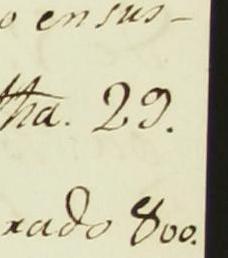 o en sus-
tha. 29.
rado 800.